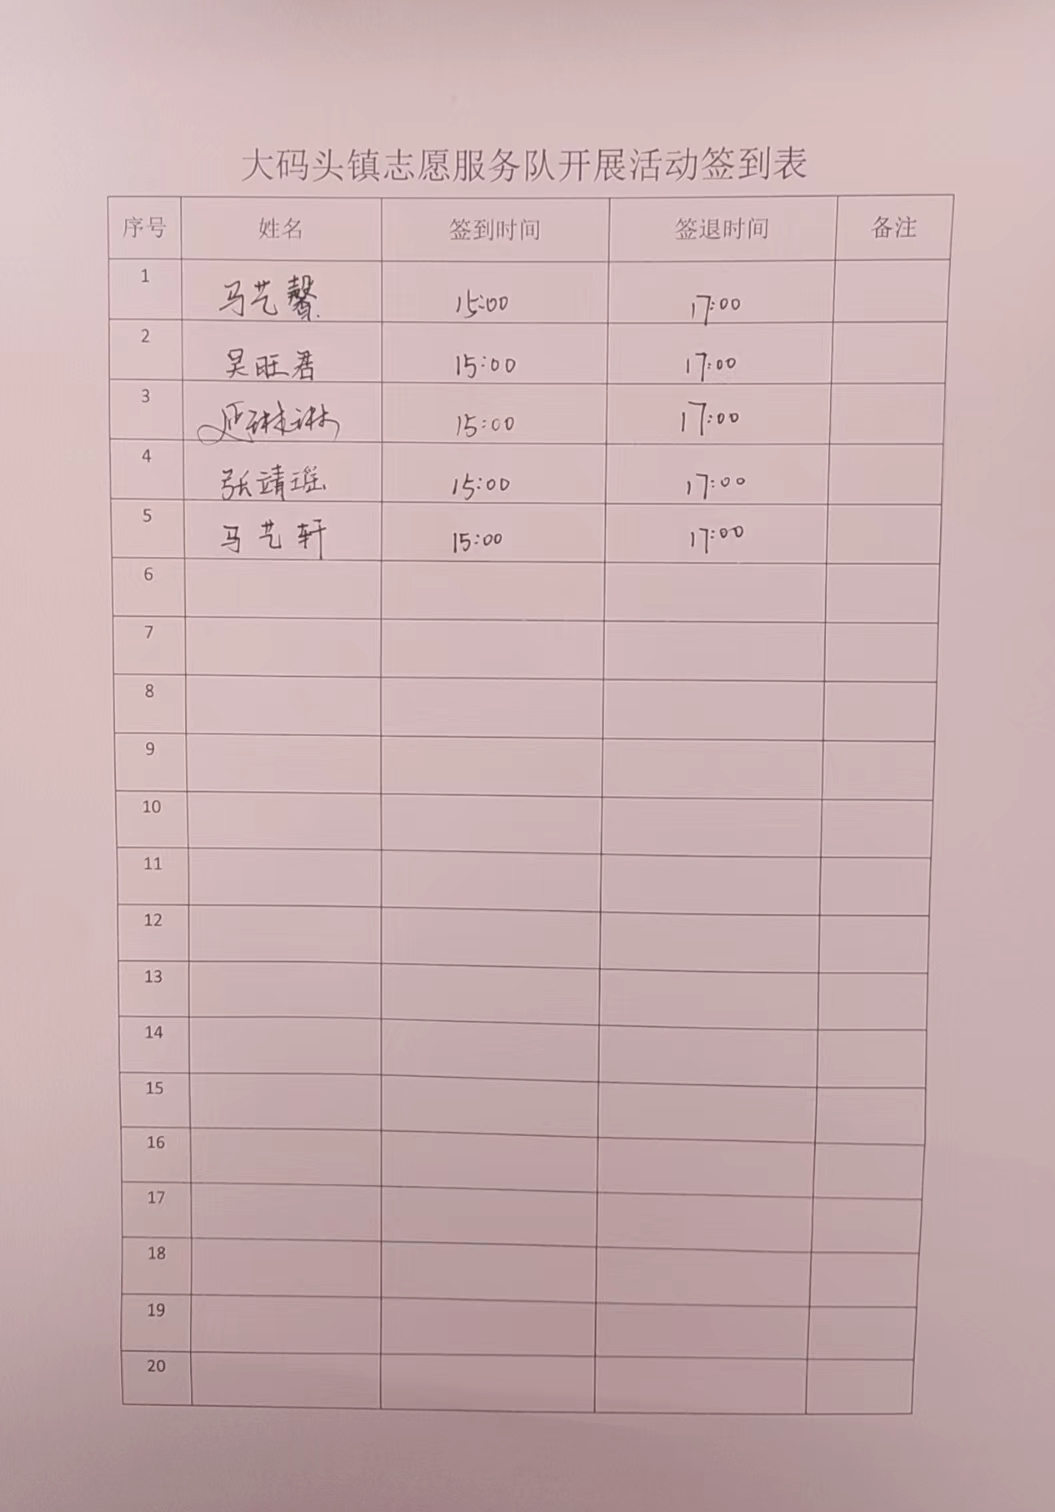 大码头镇志愿服务队开展活动签到表
序号 姓名 签到时间 签退时间 备注
1 马艺馨 15:00 17:00
2 吴旺君 15:00 17:00
3 延琳琳 15:00 17:00
4 张靖瑶 15:00 17:00
5 马艺轩 15:00 17:00
6
7
8
9
10
11
12
13
14
15
16
17
18
19
20